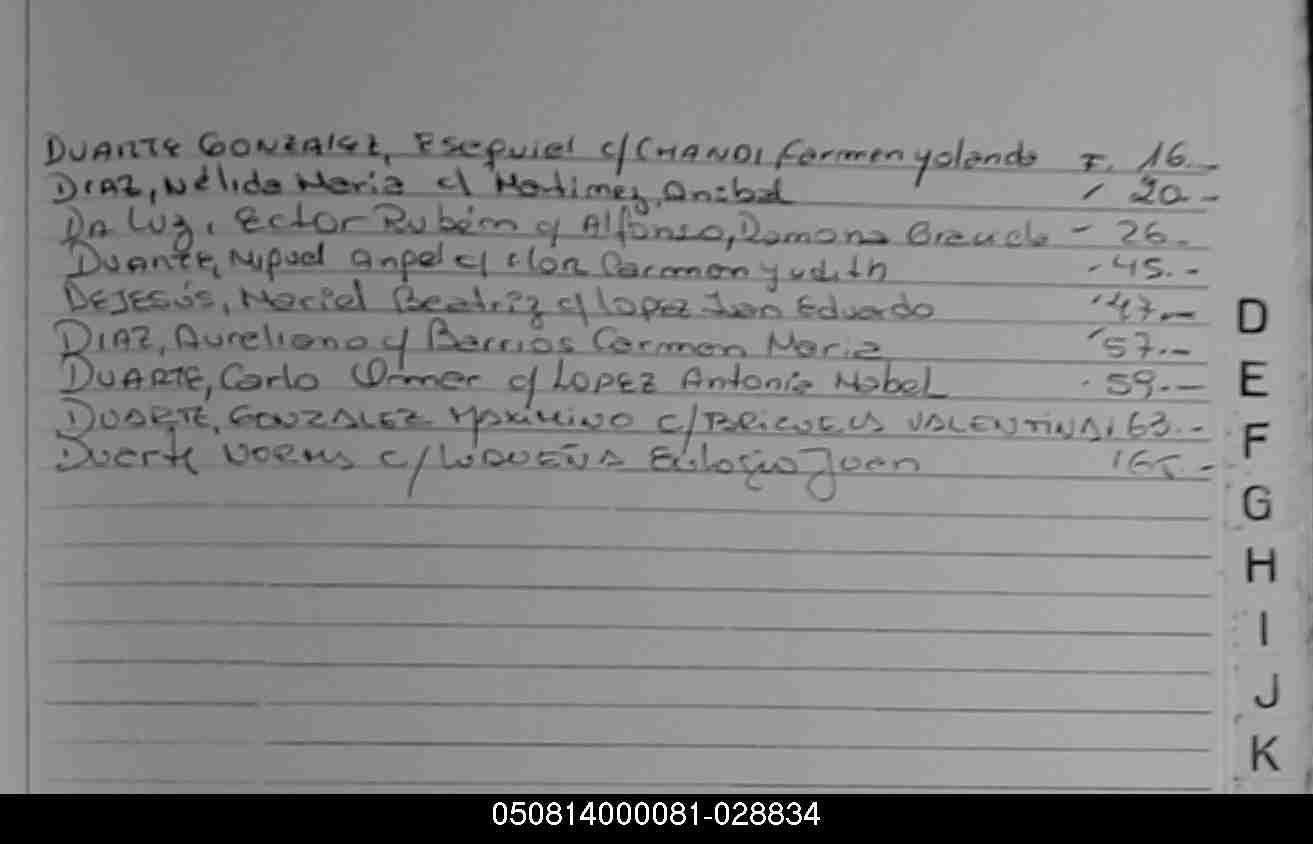 DUARTE GONZALEZ, Esequiel c/ CHANDI Carmen yolanda F. 16.-
DIAZ, Nélida Maria c/ Martinez, Anibal 20.-
DA Luz, Ector Rubém c/ Alfonso, Ramona - 26.-
Duarte, Miguel Angel c/ Carmen yudith - 45.-
DEJESÚS, Mariel Beatriz c/ lopez Juan Eduardo 47.-
DIAZ, Aureliano c/ Barrios Carmen Maria 57.-
DUARTE, Carlo Omar c/ LOPEZ Antonia Mabel 59.-
DUARTE, GONZALEZ MAXIMINO c/ VALENTINA 63.-
Duarte NORMA c/ LUDUEÑA Eulogio Juan
D
E
F
G
H
I
J
K
050814000081-028834